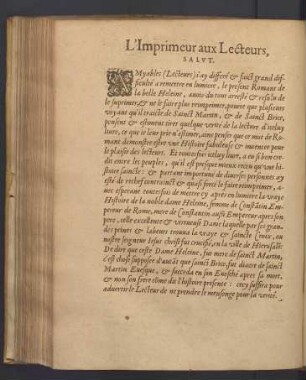 L'Imprimeur aux Lecteurs,
SALVT.
AMyables (Lecteurs) i'ay differé & faict grand dif-
ficulté a remettre en lumiere, le present Romant de
la belle Heleine, ayant du tout arresté & resolu de
le suprimer, & ne le faire plus reimprimer, pource que plusieurs
voyant qu'il traicte de Sainct Martin, & de Sainct Brice,
pensent & estiment tirer quelque verité de la lecture d'iceluy
leurs, ce que ie leur prie n'estimer, ains penser que ce mot de Ro-
mant demonstre estre vne Histoire fabuleuse & inuentee pour
le plaisir des lecteurs. Et toutesfois iceluy liure, a eu son cre-
dit entre les peuples, qu'il est presque mieux receu que vne hi-
stoire saincte: & partant importuné de diuerses personnes ay
esté de rechef contrainct & quasi forcé le faire reimprimer,
auec esperance toutesfois de mettre cy apres en lumiere la vraye
Histoire de la noble dame Heleine, femme de Constātin Empe-
reur de Rome, mere de Constantin aussi Empereur apres son
pere, celle excellente & vertueuse Dame laquelle par ses gran-
des peines & labeurs trouua la vraye & saincte Croix, ou
nostre seigneur Iesus christ fut crucifié, en la ville de Hierusalē:
De dire que ceste Dame Heleine, fut mere de sainct Martin,
c'est chose supposee d'autāt que sainct Brice, fut diacre de sainct
Martin Euesque, & succeda en son Euesché apres sa mort,
& non son frere cōme dit l'histoire presente: cecy suffira pour
aduertir le Lecteur de ne prendre le mensonge pour la verité.